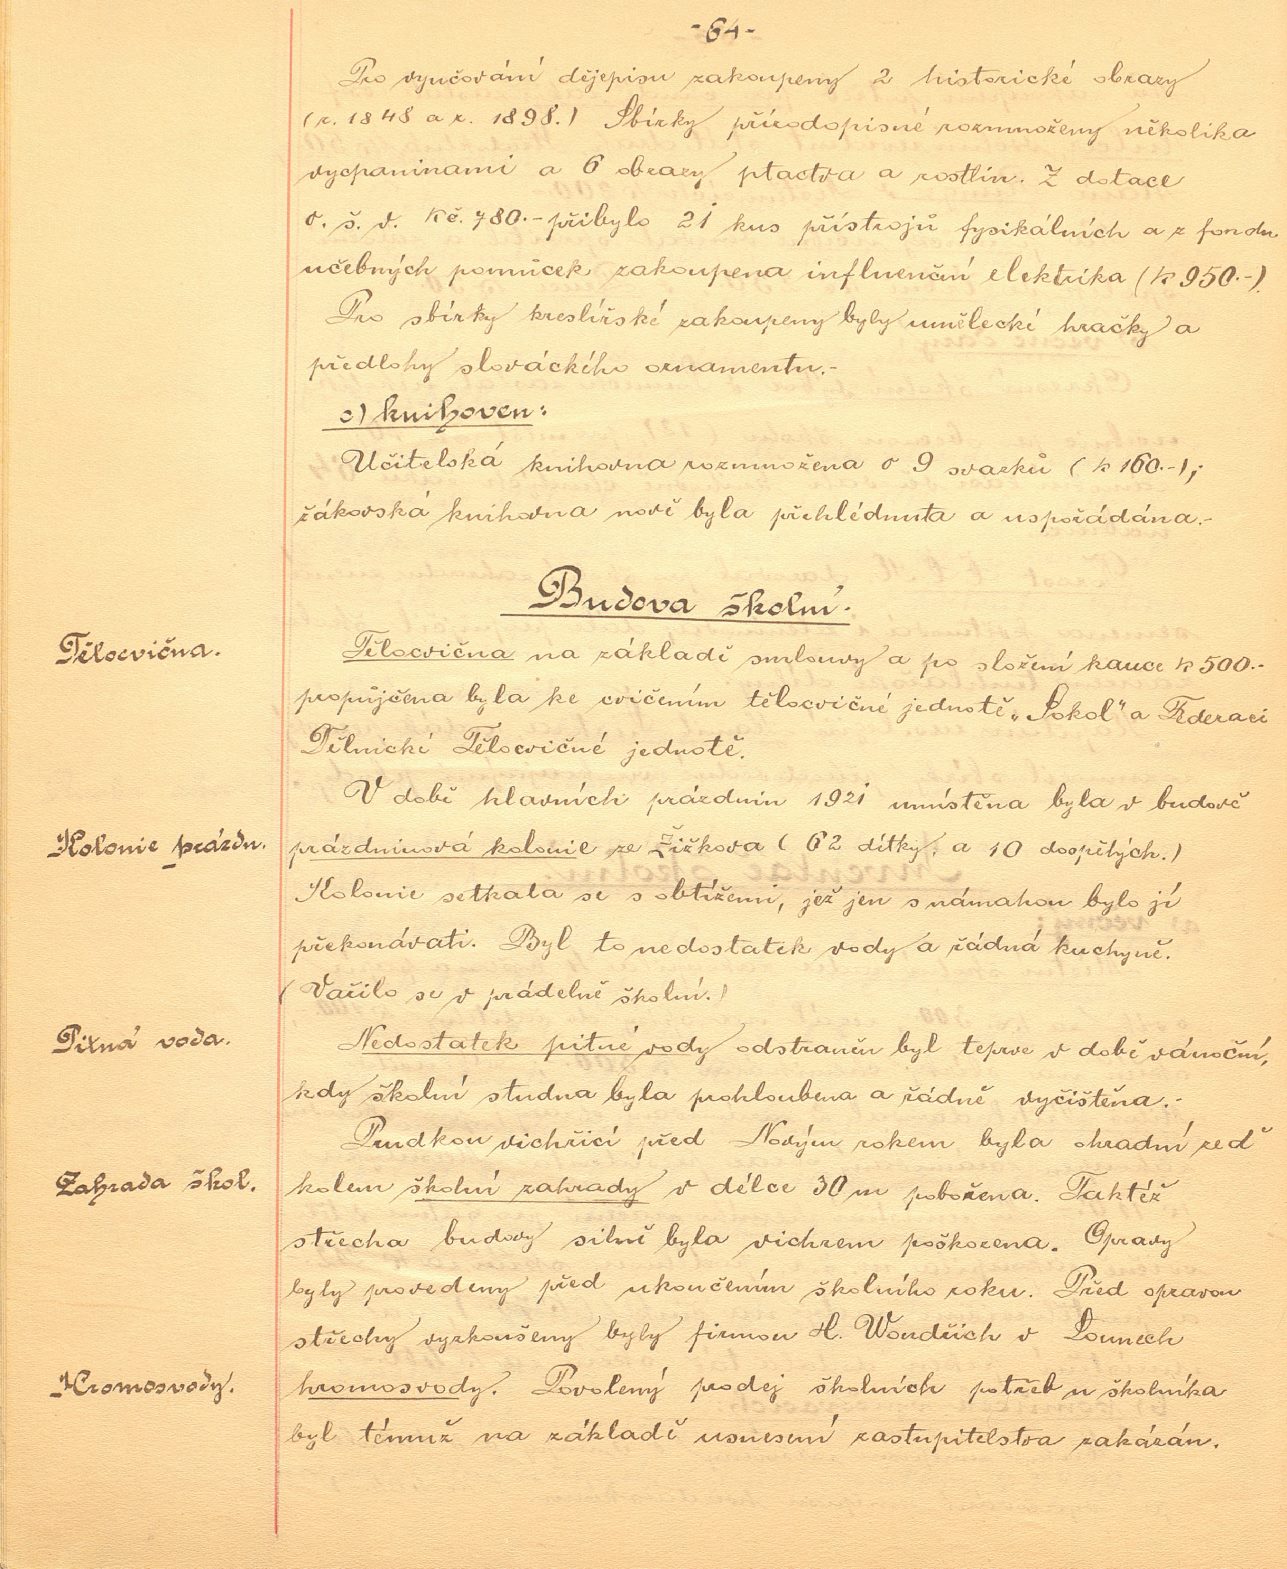 -64-
Pro vyučování dějepisu zakoupeny 2 historické obrazy
(r. 1848 a r. 1898.) Sbírky přírodopisné rozmnoženy několika
vycpaninami a 6 obrazy ptactva a rostlin. Z dotace
o. š. v. Kč. 780.- přibylo 21 kus přístrojů fysikálních a z fondu
učebných pomůcek zakoupena influenční elektrika (K 950.-).
Pro sbírky kreslířské zakoupeny byly umělecké hračky a
předlohy slováckého ornamentu.-
c) knihoven:
Učitelská knihovna rozmnožena o 9 svazků (K 160.-);
žákovská knihovna nově byla přehlédnuta a uspořádána.-
Budova školní.
Tělocvična.
Tělocvična na základě smlouvy a po složení kauce K 500.-
propůjčena byla ke cvičením tělocvičné jednotě „Sokol“ a Federaci
Dělnické Tělocvičné jednotě.
V době hlavních prázdnin 1921 umístěna byla v budově
Kolonie prázdn.
prázdninová kolonie ze Žižkova (62 dítky, a 10 dospělých.)
Kolonie setkala se s obtížemi, jež jen s námahou bylo jí
překonávati. Byl to nedostatek vody a řádná kuchyně.
(Vařilo se v prádelně školní.)
Pitná voda.
Nedostatek pitné vody odstraněn byl teprve v době vánoční,
kdy školní studna byla prohloubena a řádně vyčištěna.-
Prudkou vichřicí před Novým rokem byla ohradní zeď
Zahrada škol.
kolem školní zahrady v délce 30 m pobořena. Taktéž
střecha budovy silně byla vichrem poškozena. Opravy
byly provedeny před ukončením školního roku. Před opravou
střechy vyzkoušeny byly firmou H. Wondřich v Lounech
Hromosvody.
hromosvody. Povolený prodej školních potřeb u školníka
byl témuž na základě usnesení zastupitelstva zakázán.